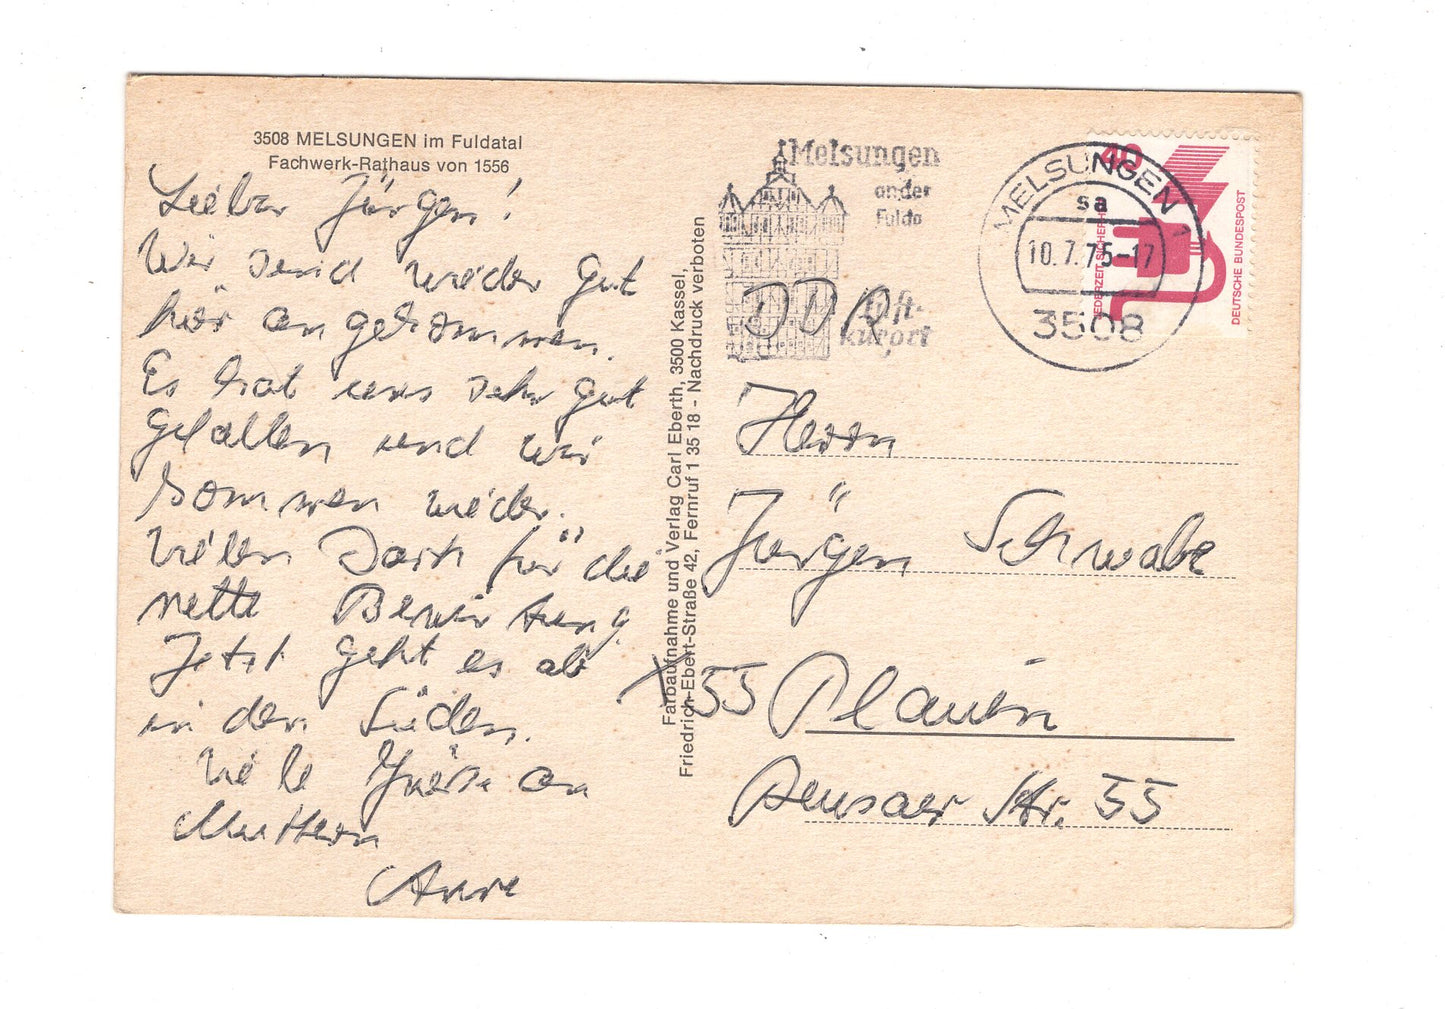 3508 MELSUNGEN im Fuldatal
Fachwerk-Rathaus von 1556
Lieber Jürgen!
Wir sind wieder gut
hier angekommen.
Es hat uns sehr gut
gefallen und wir
kommen wieder.
Vielen Dank für die
nette Bewirtung.
Jetzt geht es ab
in den Süden.
Viele Grüße an
Muttern
Anne
Farbaufnahme und Verlag Carl Eberth, 3500 Kassel,
Friedrich-Ebert-Straße 42, Fernruf 1 35 18 - Nachdruck verboten
Melsungen
an der
Fulda
Luft-
kurort
MELSUNGEN 1
sa
10.7.75-17
3508
40
JEDERZEIT SICHERHEIT
DEUTSCHE BUNDESPOST
DDR
Herrn
Jürgen Schwabe
X55 Plauen
Reusaer Str. 55